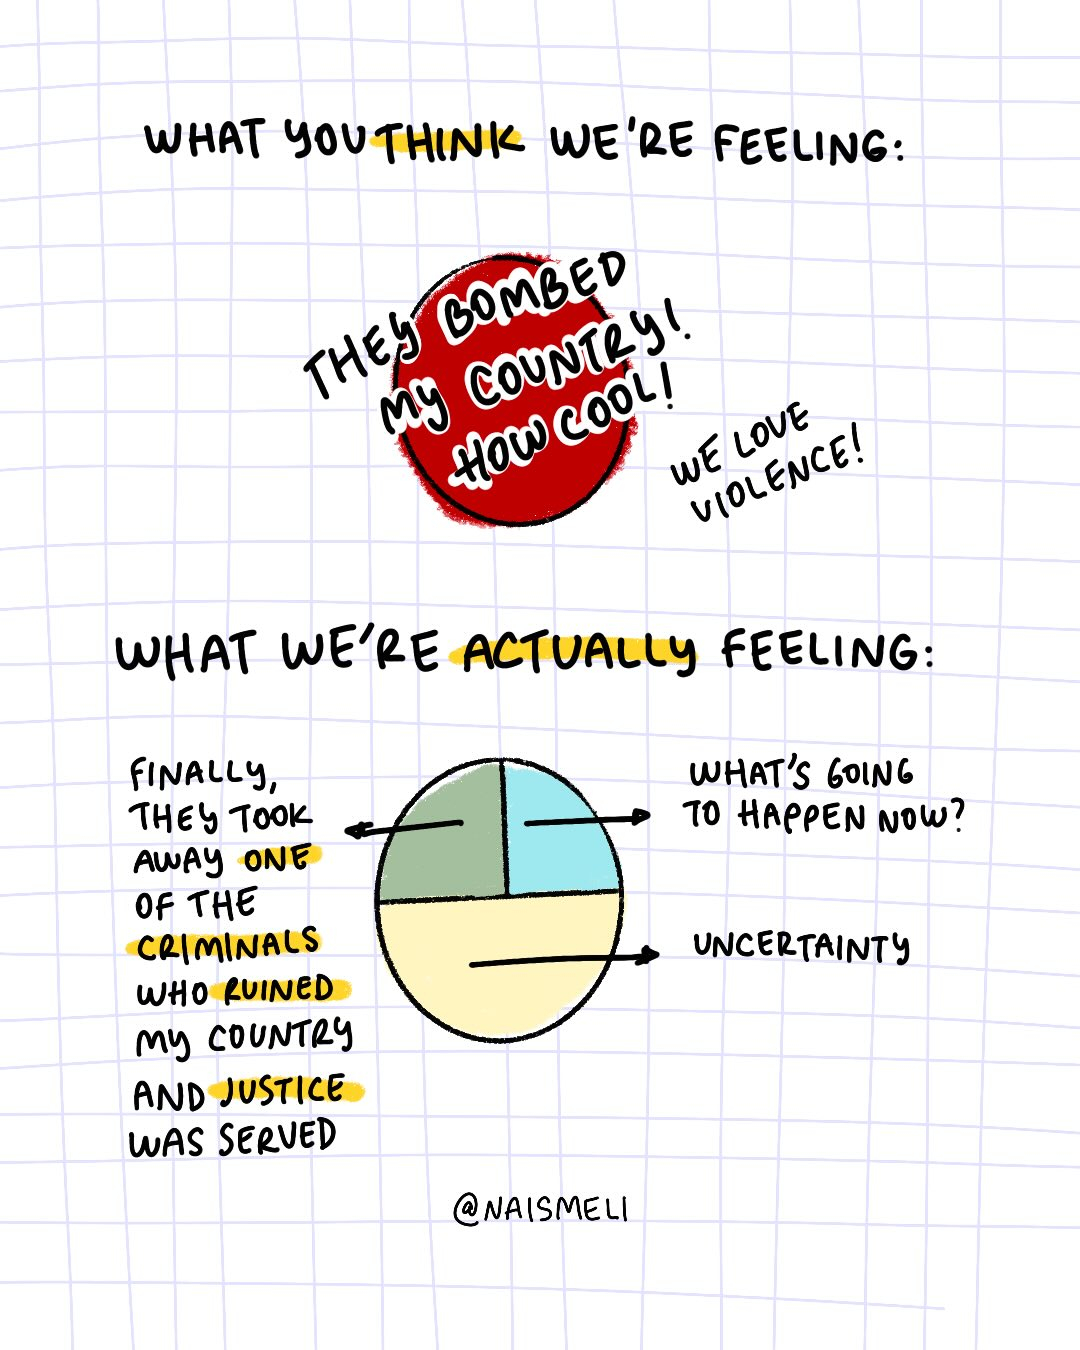 WHAT YOU THINK WE'RE FEELING:
THEY BOMBED
MY COUNTRY!
HOW COOL!
WE LOVE
VIOLENCE!
WHAT WE'RE ACTUALLY FEELING:
FINALLY,
THEY TOOK
AWAY ONE
OF THE
CRIMINALS
WHO RUINED
MY COUNTRY
AND JUSTICE
WAS SERVED
WHAT'S GOING
TO HAPPEN NOW?
UNCERTAINTY
@NAISMELI